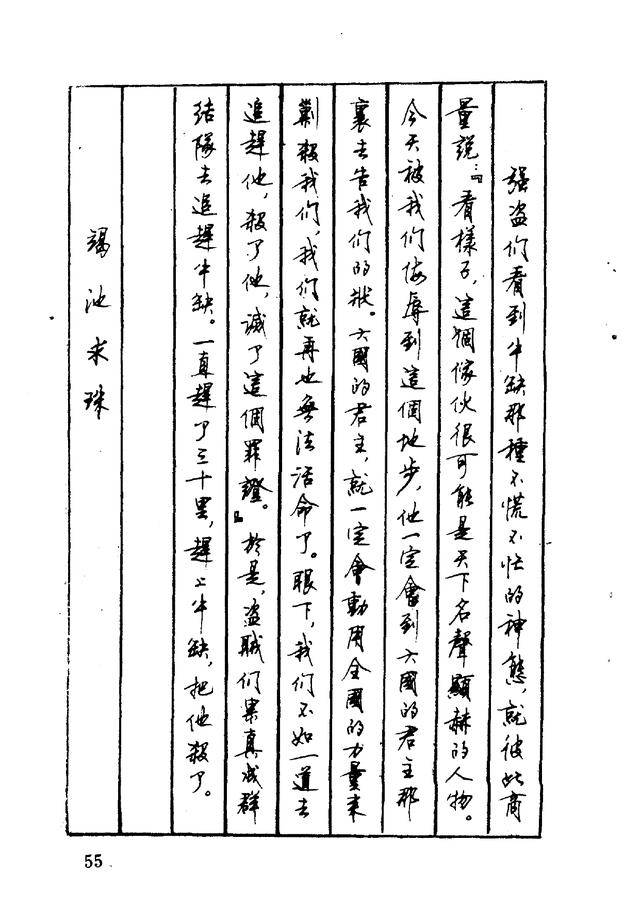 强盗们看到牛缺那種不慌不忙的神態，就彼此商
量説：『看樣子，這個傢伙很可能是天下名聲顯赫的人物。
今天被我们侮辱到這個地步，他一定會到大國的君主那
裏去告我们的狀。大國的君主，就一定會動用全國的力量来
剿殺我们，我们就再也無法活命了。眼下，我们不如一道去
追趕他，殺了他，滅了這個罪證。』於是，盗贼们果真成群
结隊去追趕牛缺。一直趕了三十里，趕上牛缺，把他殺了。
竭池求珠
55